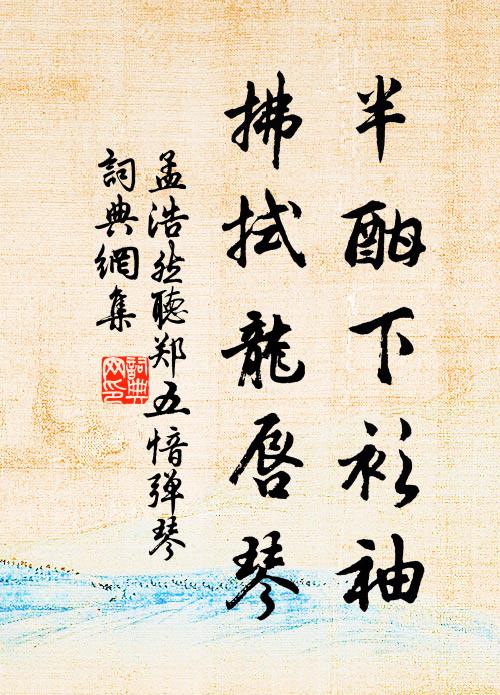 半酣下衫袖
拂拭龍唇琴
孟浩然聽郑五愔弹琴
詞典網集
詞典網印